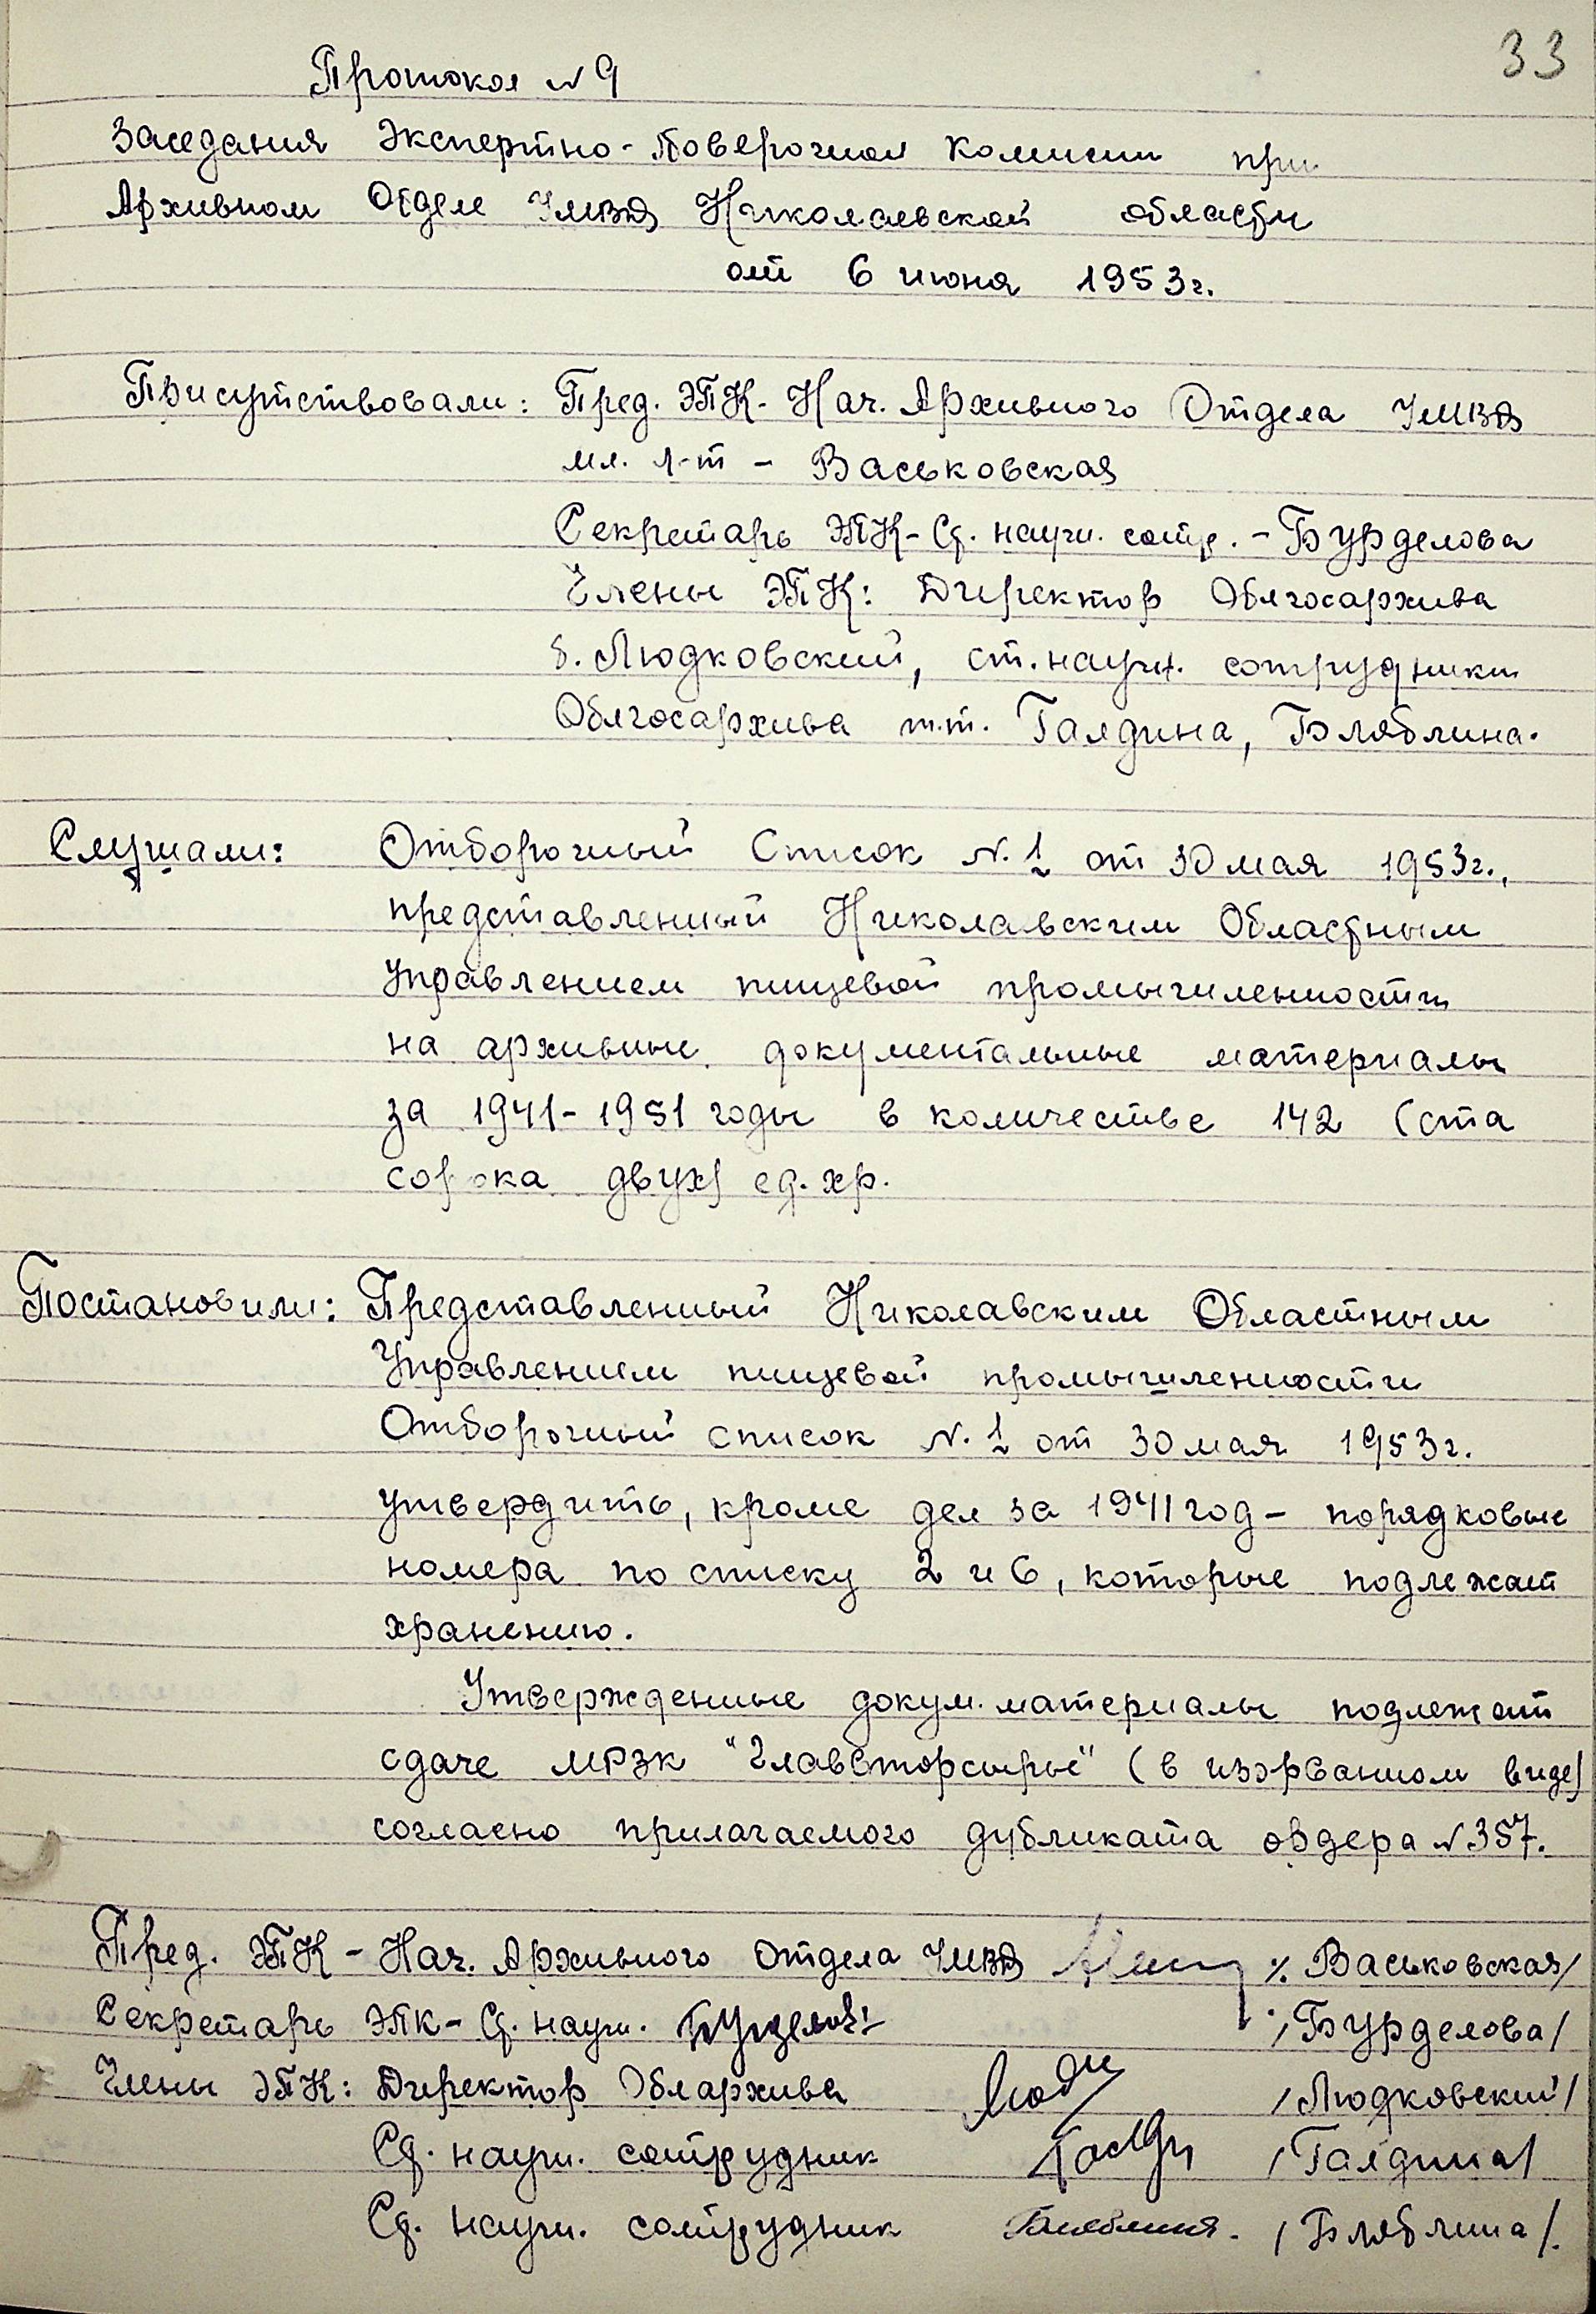 33
Протокол № 9
Заседания Экспертно-Поверочной Комиссии при
Архивном Отделе УМВД Николаевской области
от 6 июня 1953 г.
Присутствовали: Пред. ЭПК - Нач. Архивного Отдела УМВД
мл. л-т - Васьковская
Секретарь ЭПК - Ст. научн. сотр. - Бурделова
Члены ЭПК: Директор Облгосархива
т. Людковский, ст. научн. сотрудники
Облгосархива т.т. Галдина, Бляблина.
Слушали: Отборочный Список №. 1 от 30 мая 1953 г.,
представленный Николаевским Областным
Управлением пищевой промышленности
на архивные документальные материалы
за 1941-1951 годы в количестве 142 (ста
сорока двух) ед. хр.
Постановили: Представленный Николавским Областным
Управлением пищевой промышленности
Отборочный список №. 1 от 30 мая 1953 г.
утвердить, кроме дел за 1941 год - порядковые
номера по списку 2 и 6, которые подлежат
хранению.
Утвержденные докум. материалы подлежат
сдаче МРЗК "Главвторсырье" (в изорванном виде)
согласно прилагаемого дубликата ордера № 357.
Пред. ЭПК - Нач. Архивного Отдела УМВД /Васьковская/
Секретарь ЭПК - Ст. научн. Бурделова /Бурделова/
Члены ЭПК: Директор Облархива Людк /Людковский/
Ст. научн. сотрудник Галди /Галдина/
Ст. научн. сотрудник Бляблина. /Бляблина/.